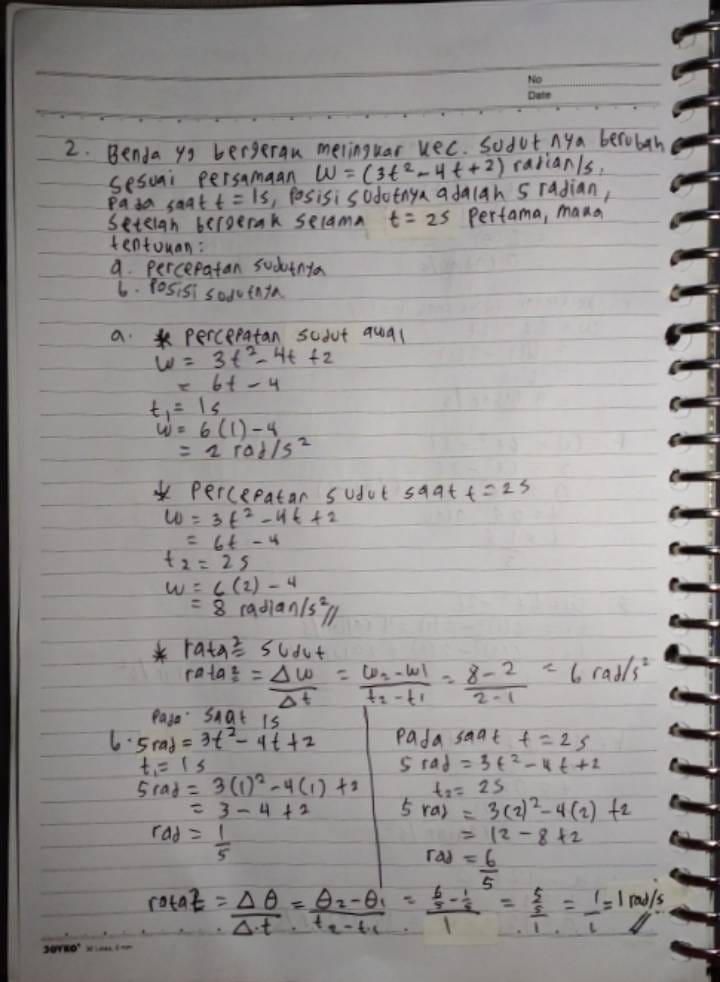 No
Date
2. Benda yg bergerak melingkar kec. sudutnya berubah
sesuai persamaan W = (3t² - 4t + 2) radian/s,
Pada saat t = 1s, posisi sudutnya adalah 5 radian,
setelah bergerak selama t = 2s pertama, maka
tentukan:
a. percepatan sudutnya
b. Posisi sudutnya
a. * Percepatan sudut awal
W = 3t² - 4t + 2
= 6t - 4
t₁ = 1s
W = 6(1) - 4
= 2 rad/s²
* Percepatan sudut saat t = 2s
W = 3t² - 4t + 2
= 6t - 4
t₂ = 2s
W = 6(2) - 4
= 8 radian/s² //
* rata² sudut
rata² = Δω/Δt = ω₂ - ω1/t₂ - t₁ = 8 - 2/2 - 1 = 6 rad/s²
Pada saat 1s
b. 5 rad = 3t² - 4t + 2
t₁ = 1s
5 rad = 3(1)² - 4(1) + 2
= 3 - 4 + 2
rad = 1/5
Pada saat t = 2s
5 rad = 3t² - 4t + 2
t₂ = 2s
5 rad = 3(2)² - 4(2) + 2
= 12 - 8 + 2
rad = 6/5
rata² = Δθ/Δt = θ₂ - θ₁/t₂ - t₁ = 6/5 - 1/5 / 1 = 5/5 / 1 = 1/1 = 1 rad/s //
JOYKO